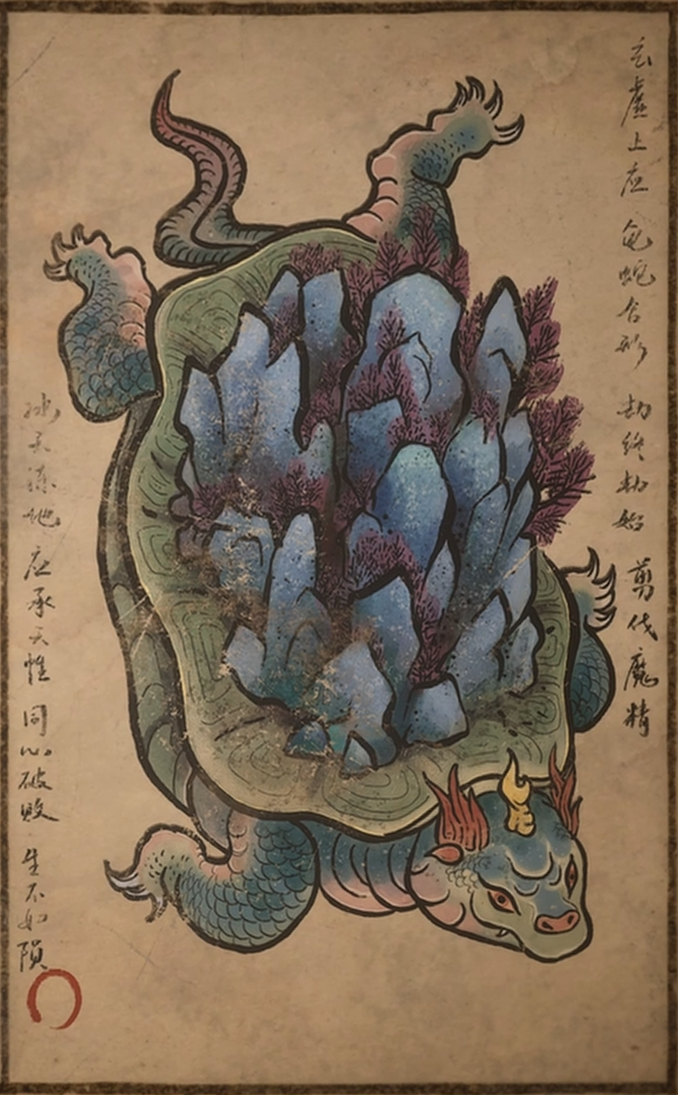 玄虚上应 龟蛇合形 劫终劫始 剪伐魔精
天 地 应承天性 同心破败 生不如陨